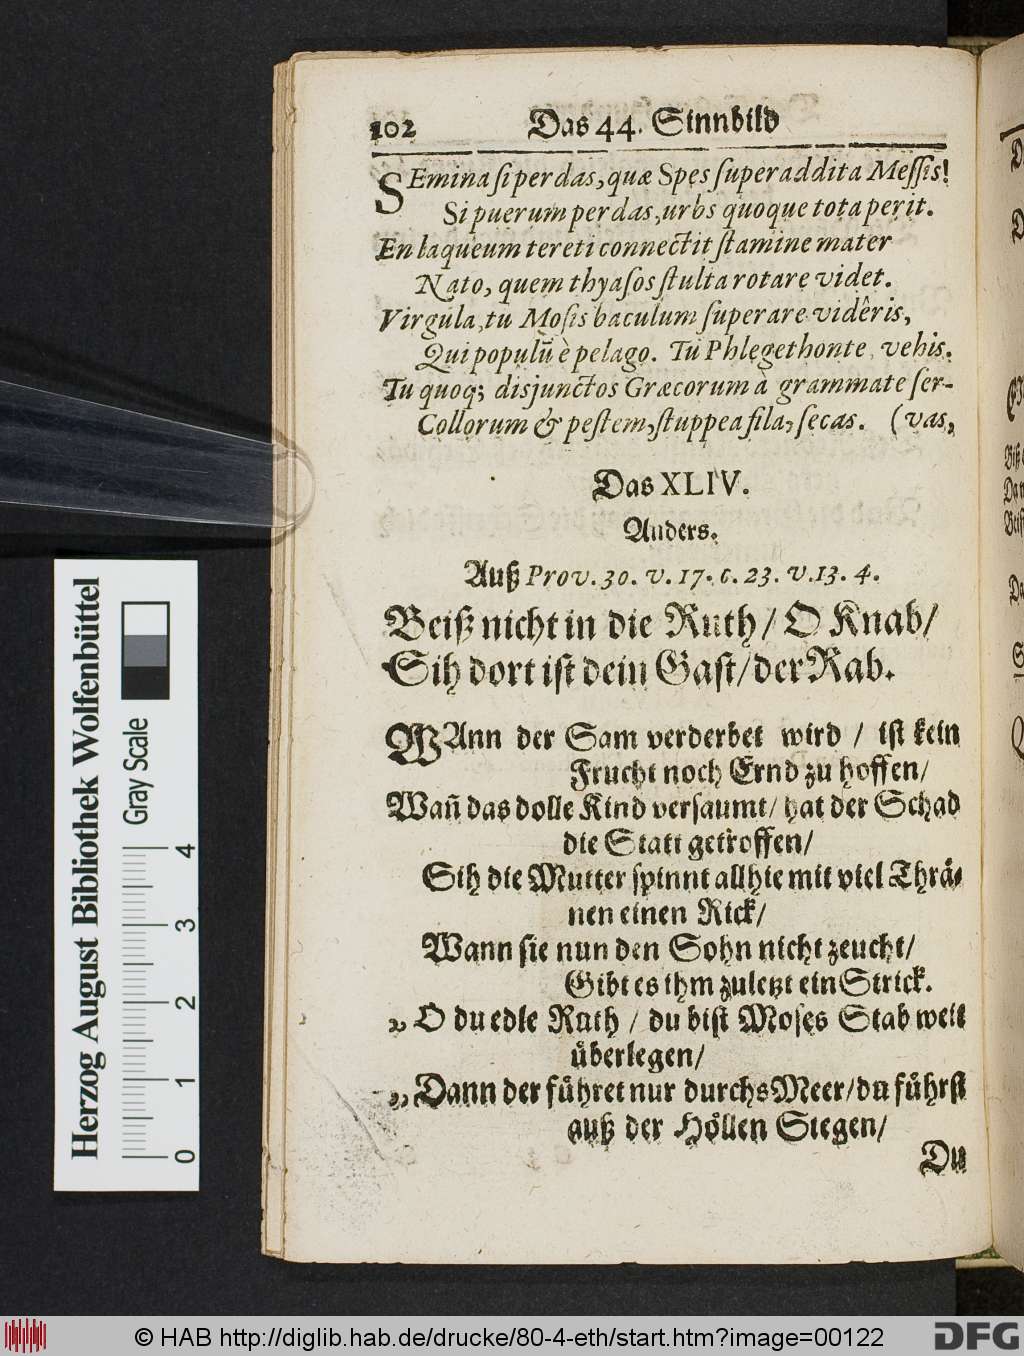 102 Das 44. Sinnbild
SEmina si perdas, quæ Spes superaddita Messis!
Si puerum perdas, urbs quoque tota perit.
En laqueum tereti connectit stamine mater
Nato, quem thyasos stulta rotare videt.
Virgula, tu Mosis baculum superare vidêris,
Qui populũ è pelago. Tu Phlegethonte vehis.
Tu quoq; disjunctos Græcorum à grammate ser-
Collorum & pestem, stuppea fila, secas. (vas,
Das XLIV.
Anders.
Auß Prov. 30. v. 17. c. 23. v. 13. 4.
Beiß nicht in die Ruth/ O Knab/
Sih dort ist dein Gast/ der Rab.
WAnn der Sam verderbet wird / ist kein
Frucht noch Ernd zu hoffen/
Wañ das dolle Kind versaumt/ hat der Schad
die Statt getroffen/
Sih die Mutter spinnt allhie mit viel Thrä-
nen einen Rick/
Wann sie nun den Sohn nicht zeucht/
Gibt es ihm zuletzt ein Strick.
„ O du edle Ruth / du bist Moses Stab weit
überlegen/
„ Dann der führet nur durchs Meer/ du führst
auß der Höllen Stegen/
Du
Herzog August Bibliothek Wolfenbüttel
Gray Scale
0 1 2 3 4
© HAB http://diglib.hab.de/drucke/80-4-eth/start.htm?image=00122
DFG